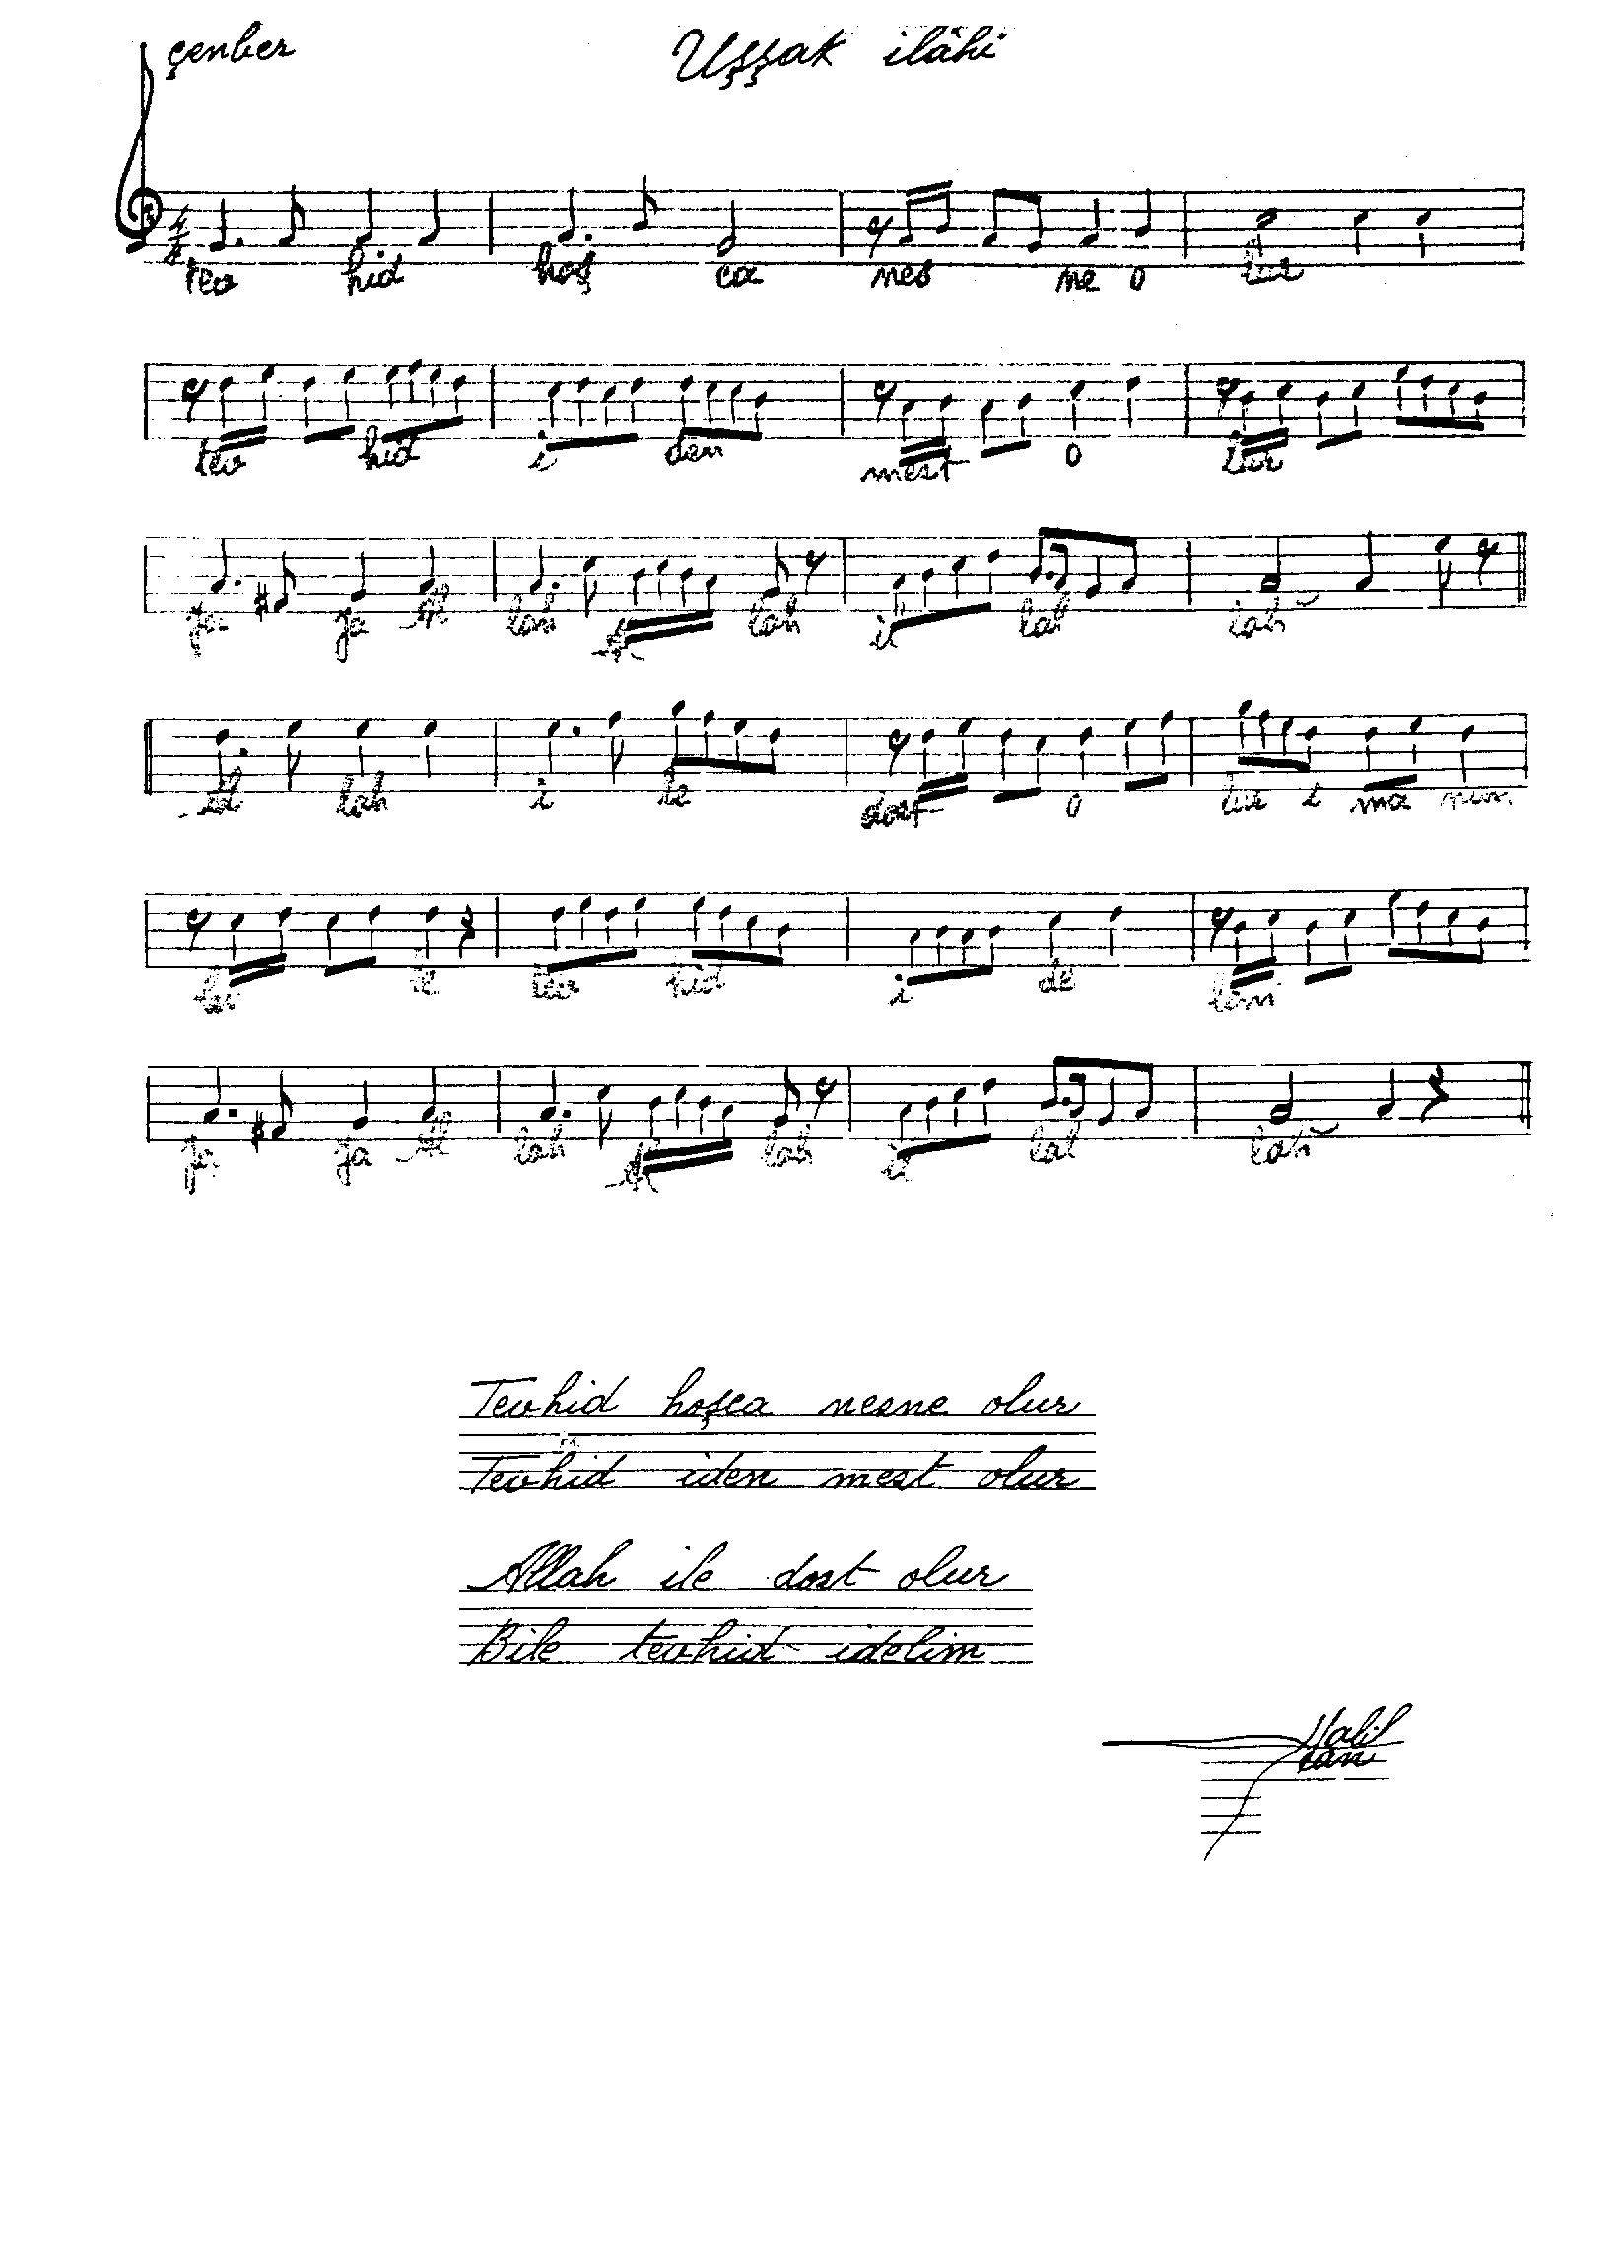 çenber
Uşşak ilâhi
tev hid hoş ca nes ne o lur
tev hid i den mest o lur
ya ya Al lah Al lah il lal lah
Al lah i le dost o lur i ma nım
le tev hid i de lim
ya ya Al lah Al lah il lal lah
Tevhid hoşca nesne olur
Tevhid iden mest olur
Allah ile dost olur
Bile tevhid idelim
Halil Can